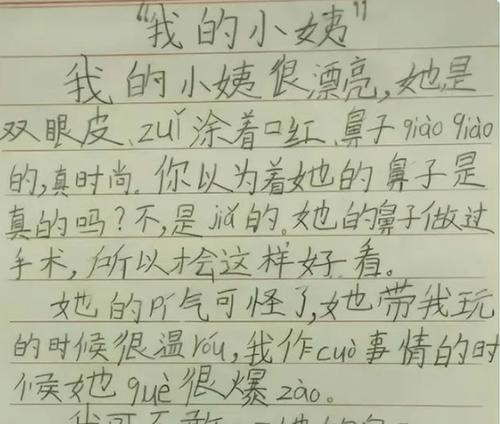 "我的小姨"
我的小姨很漂亮,她是
双眼皮、zuǐ涂着口红、鼻子qiào qiào
的,真时尚。你以为着她的鼻子是
真的吗?不,是jiǎ的。她的鼻子做过
手术,所以才会这样好看。
她的pí气可怪了,她带我玩
的时候很温róu,我作cuò事情的时
候她què很爆zào。